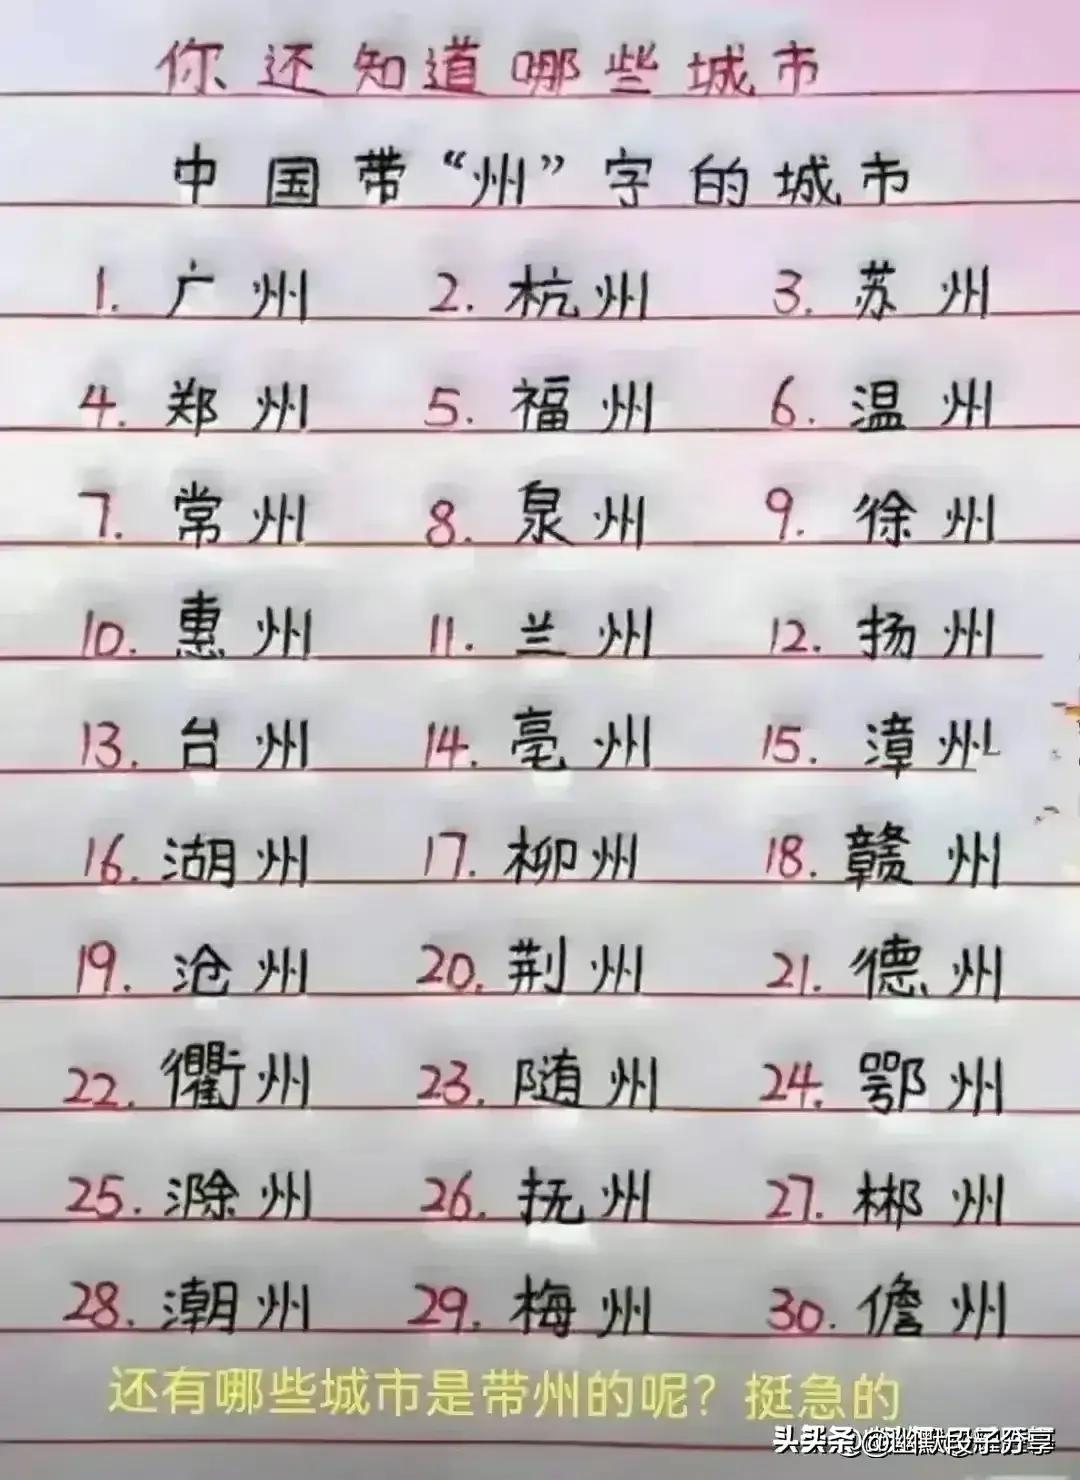 你还知道哪些城市
中国带“州”字的城市
1. 广州 2. 杭州 3. 苏州
4. 郑州 5. 福州 6. 温州
7. 常州 8. 泉州 9. 徐州
10. 惠州 11. 兰州 12. 扬州
13. 台州 14. 亳州 15. 漳州
16. 湖州 17. 柳州 18. 赣州
19. 沧州 20. 荆州 21. 德州
22. 衢州 23. 随州 24. 鄂州
25. 滁州 26. 抚州 27. 郴州
28. 潮州 29. 梅州 30. 儋州
还有哪些城市是带州的呢？挺急的
头条 @幽默段子分享